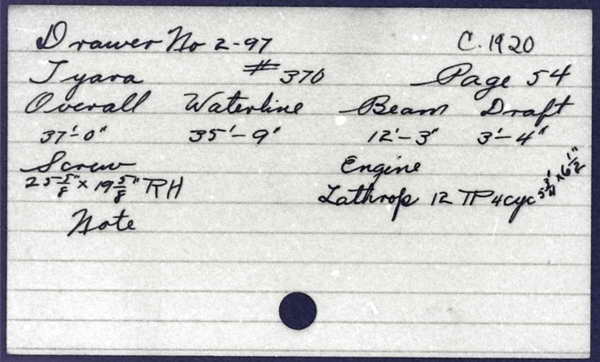 Drawer No 2-97 C. 1920
Tyara #370 Page 54
Overall Waterline Beam Draft
37'-0" 35'-9" 12'-3" 3'-4"
Screw Engine
25 5/8" x 19 5/8" RH Lathrop 12 HP 4 cyc 5 3/4" x 6 1/2"
Note